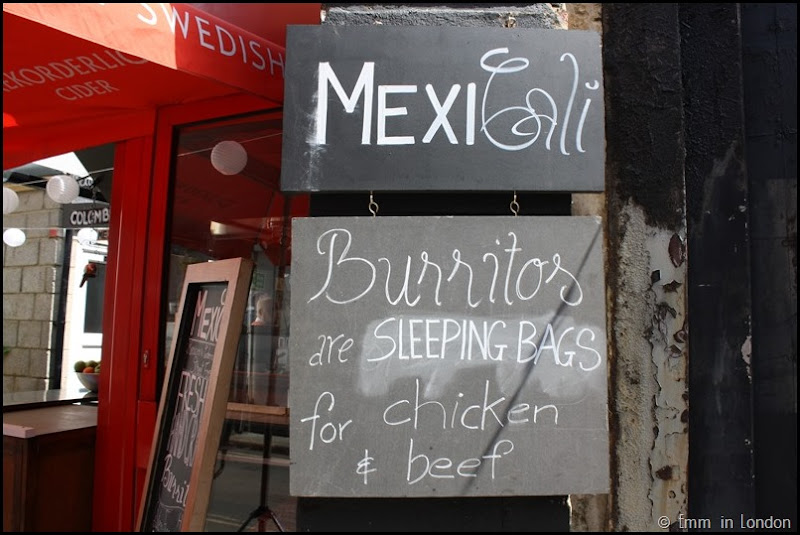 SWEDISH
REKORDERLIG
CIDER
MEXICali
COLOMB
Burritos
are SLEEPING BAGS
for chicken
& beef
MEXI
FRESH
Burri
© Emm in London